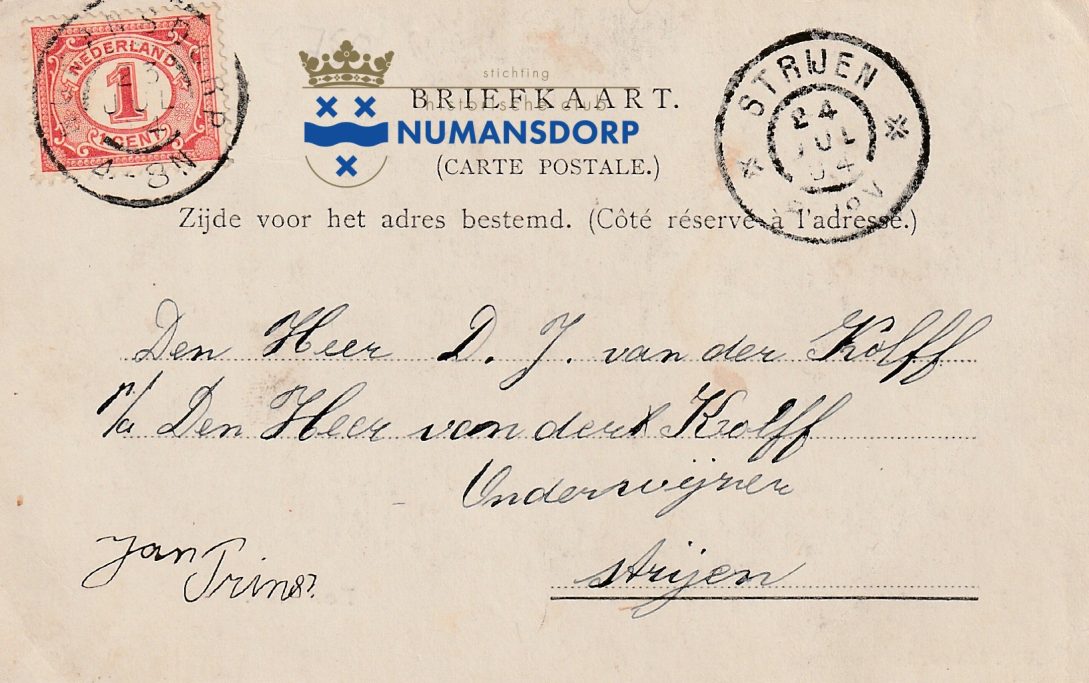 NEDERLAND
1
CENT
stichting
historische club
NUMANSDORP
BRIEFKAART.
(CARTE POSTALE.)
Zijde voor het adres bestemd. (Côté réservé à l'adresse.)
STRIJEN
24
JUL
04
Den Heer D. J. van der Kolff
p/a Den Heer van der Kolff
Onderwijzer
Strijen
Jan